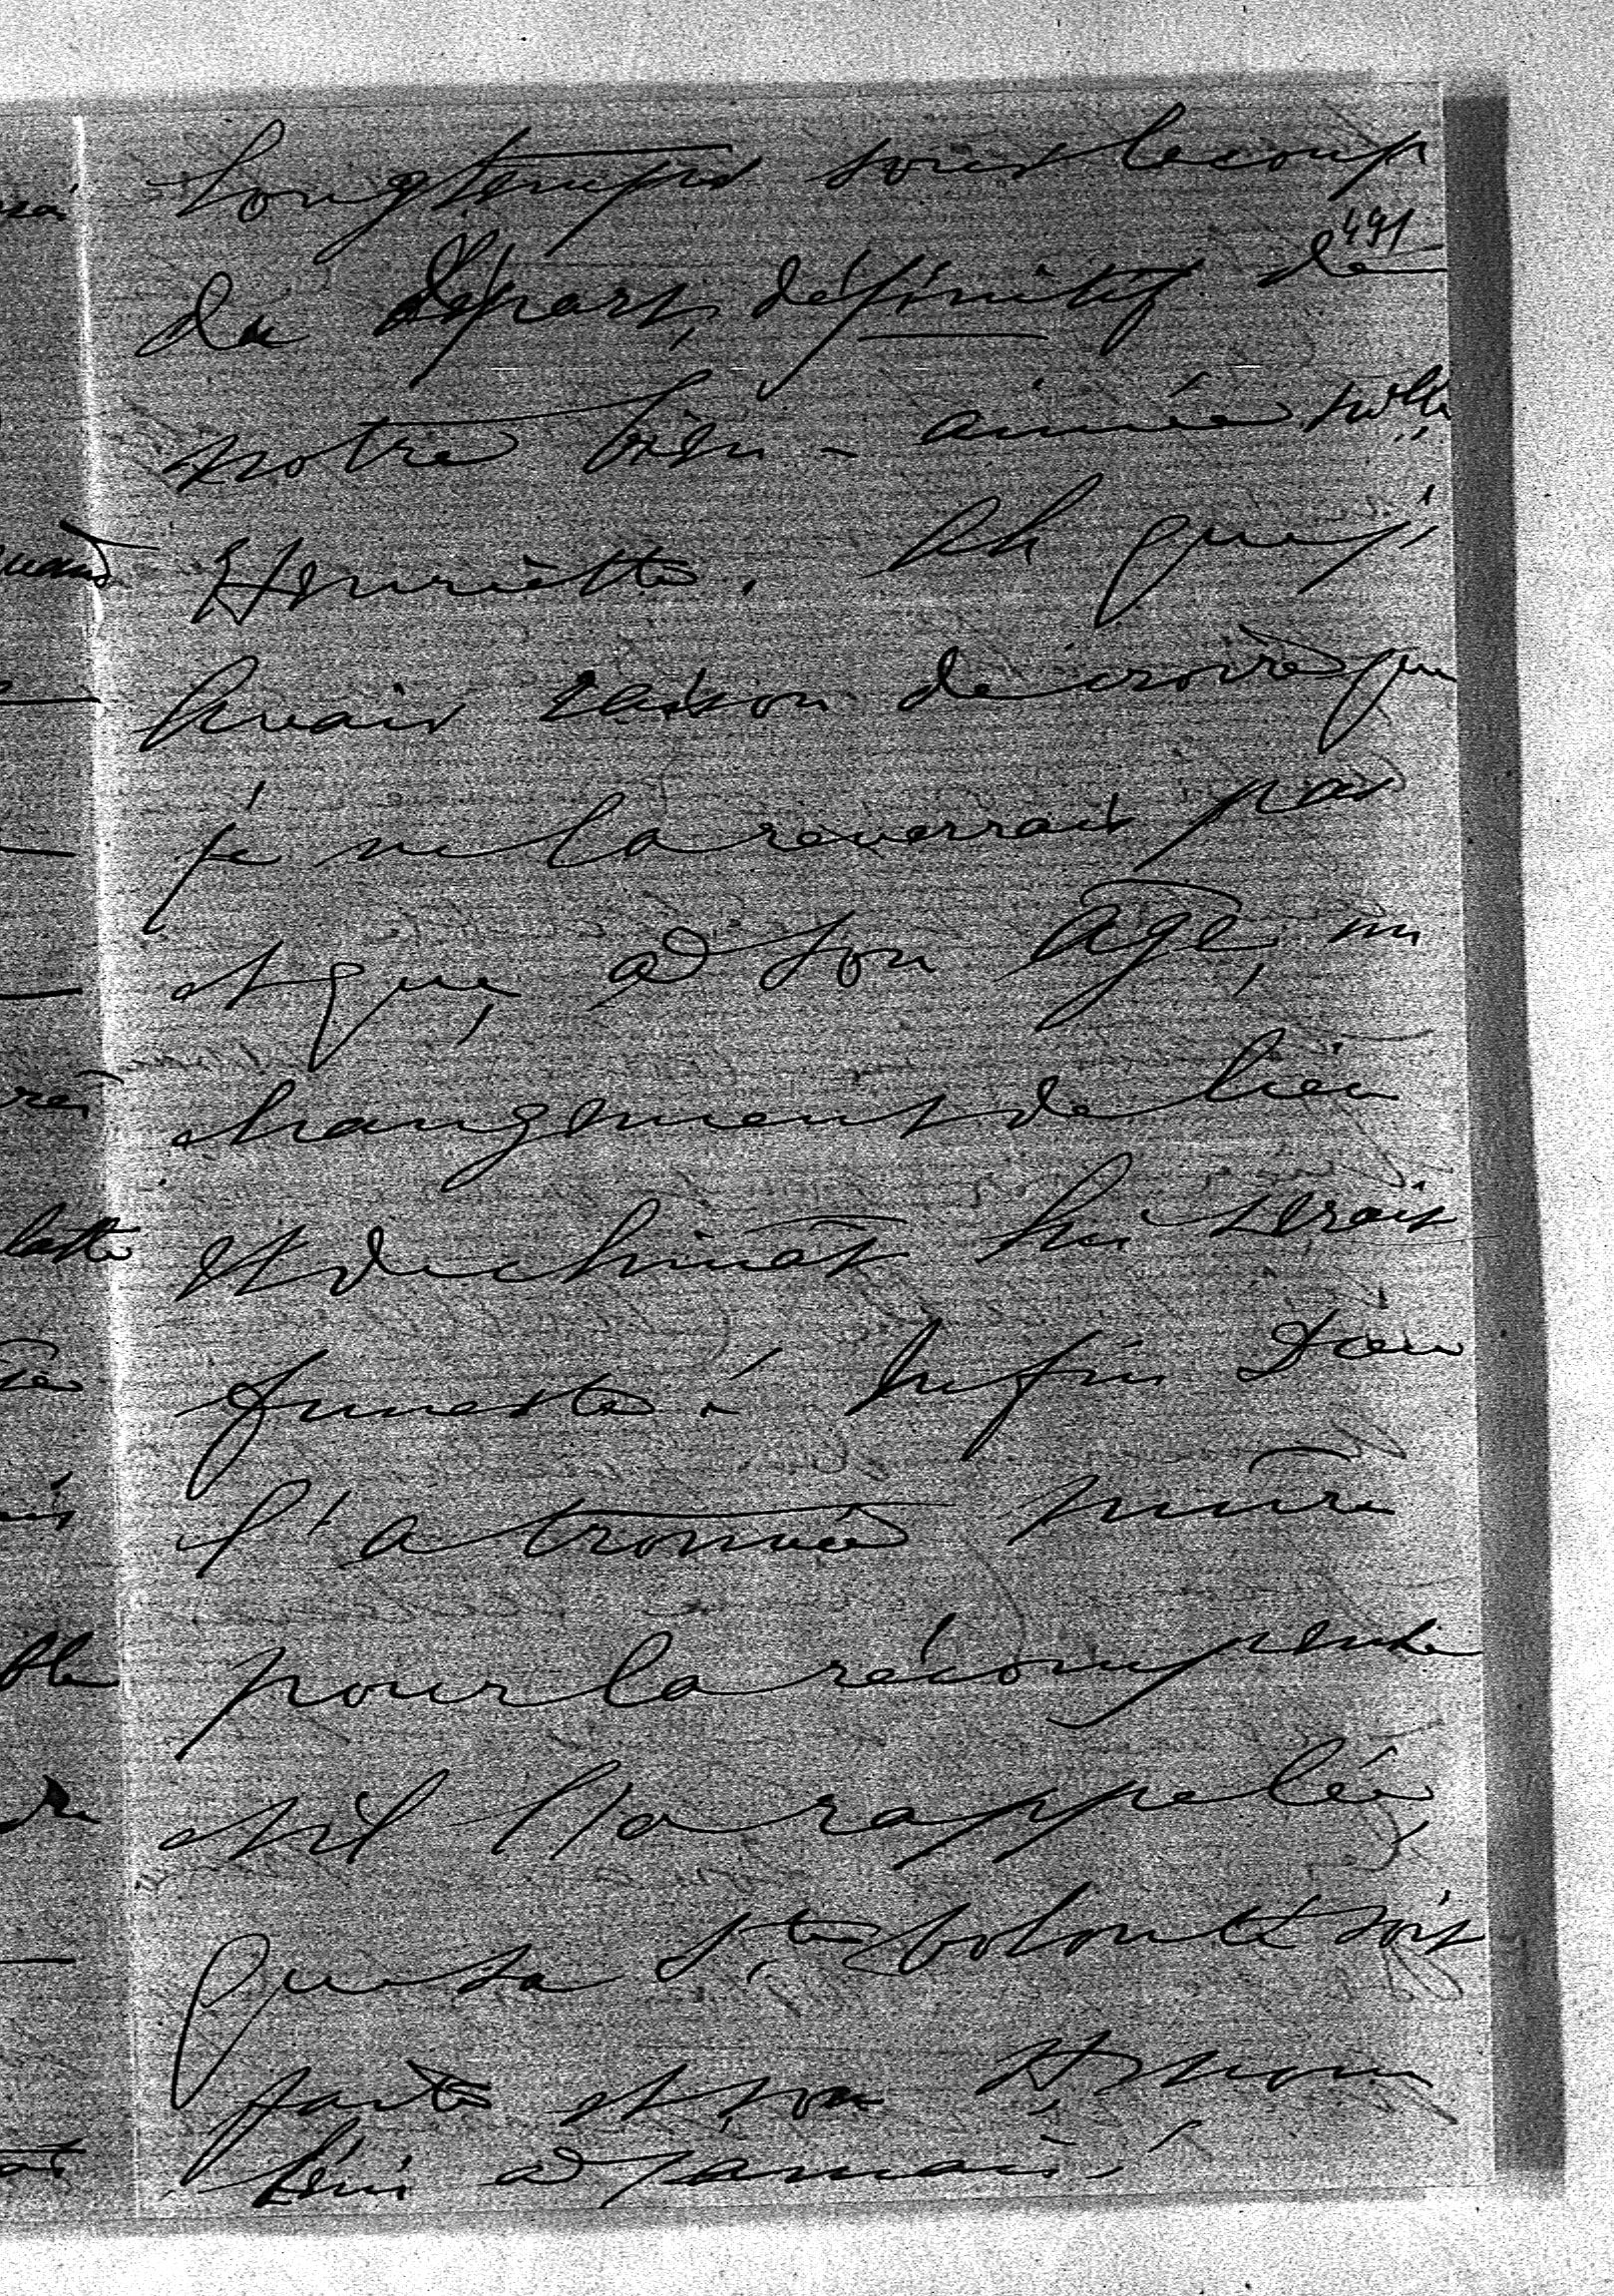 longtemps sous le coup
491
du départ, définitif de
notre bien-aimée Mlle
Henriette. Ah que j'
avais raison de croire que
je ne la reverrais pas
et que, à son âge, un
changement de lieu
et de climat lui serait
funeste! Enfin Dieu
l'a trouvée mûre
pour la récompense
et il l'a rappelée,
que sa Ste volonté soit
faite et son St nom
béni à jamais!